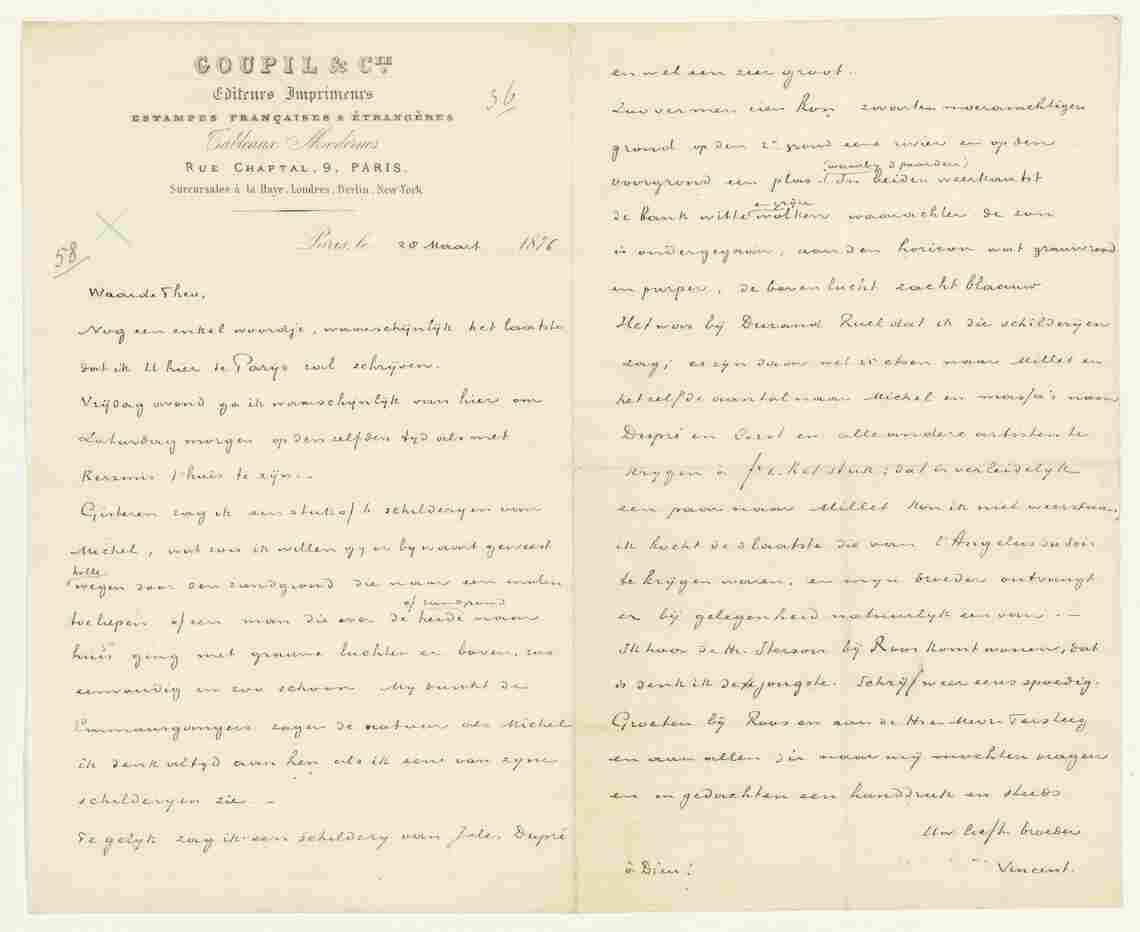 GOUPIL & Cᴵᴱ
Editeurs Imprimeurs
ESTAMPES FRANÇAISES & ÉTRANGÈRES
Tableaux Modernes
RUE CHAPTAL, 9, PARIS.
Succursales à la Haye, Londres, Berlin, New-York
36
58
Paris, le 28 Maart 1876
Waarde Theo,
Nog een enkel woordje, waarschijnlijk het laatste
dat ik U hier te Parijs zal schrijven.
Vrijdag avond ga ik waarschynlyk van hier om
Zaturdag morgen op den zelfden tyd als met
Kersmis t'huis te zijn. –
Gisteren zag ik een stuk of 6 schilderyen van
Michel, wat zou ik willen gy er by waart geweest
holle
wegen door een zandgrond die naar een molen
of zandgrond
toeliepen of een man die over de heide naar
huis ging met graauwe luchten er boven, zoo
eenvoudig en zoo schoon My dunkt de
Emmausgangers zagen de natuur als Michel
ik denk altyd aan hen als ik een van zyne
schilderyen zie –
Te gelyk zag ik een schildery van Jules Dupré
en wel een zeer groot.
Zoo ver men zien kon zwarten moerasachtigen
grond op den 2ᵉ grond eene rivier en op den
(waarby 3 paarden)
voorgrond een plas. In beiden weerkaatst
en grijze
de bank witte wolken waarachter de zon
is ondergegaan, aan den horizon wat graauwrood
en purper, de boven lucht zacht blaauw
Het was bij Durand Ruel dat ik die schilderijen
zag; er zijn daar wel 25 etsen naar Millet en
hetzelfde aantal naar Michel en massa's naar
Dupré en Corot en alle andere artisten te
krygen à fr 1. het stuk; dat is verleidelyk
een paar naar Millet kon ik niet weerstaan,
ik kocht de 3 laatste die van l'Angelus du soir
te krijgen waren, en mijn broeder ontvangt
er bij gelegenheid natuurlyk een van. –
Ik hoor de Hr. Sterson bij Roos komt wonen, dat
is denk ik de jongste. Schrijf weer eens spoedig.
Groeten bij Roos en aan de Hr en Mevr Tersteeg
en aan allen die naar mij mochten vragen
en in gedachten een handdruk en steeds
Uw liefh. broeder
à Dieu! Vincent.